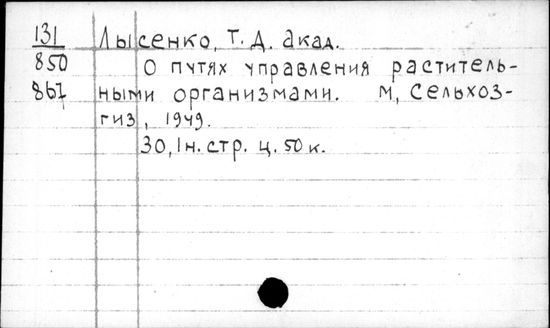 131 Лысенко, Т. Д. акад.
850 О путях управления раститель-
867 ными организмами. М, Сельхоз-
гиз, 1949.
30, 1н. стр. ц. 50 к.